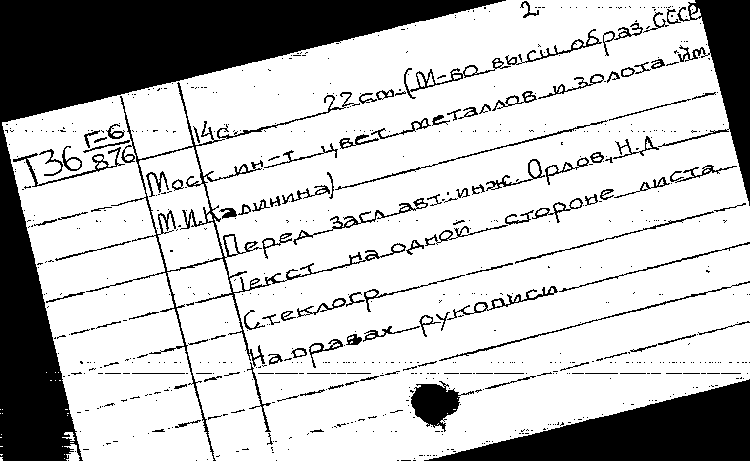 2.
Т36 Г-6/876
14с. 22 см. (М-во высш. образ. СССР
Моск ин-т цвет металлов и золота им
М.И.Калинина).
Перед загл авт.: инж. Орлов, Н.Д
Текст на одной стороне листа
Стеклогр.
На правах рукописи.